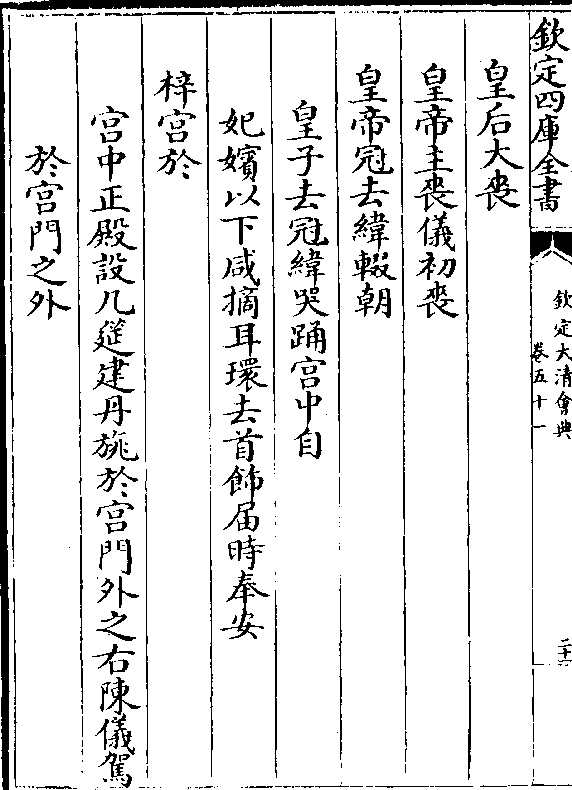 欽定四庫全書
欽定大清會典
卷五十一
二十一
皇后大喪
皇帝主喪儀初喪
皇帝冠去緯輟朝
皇子去冠緯哭踊宫中自
妃嬪以下咸摘耳環去首飾届時奉安
梓宫於
宫中正殿設几筵建丹旐於宫門外之右陳儀駕
於宫門之外